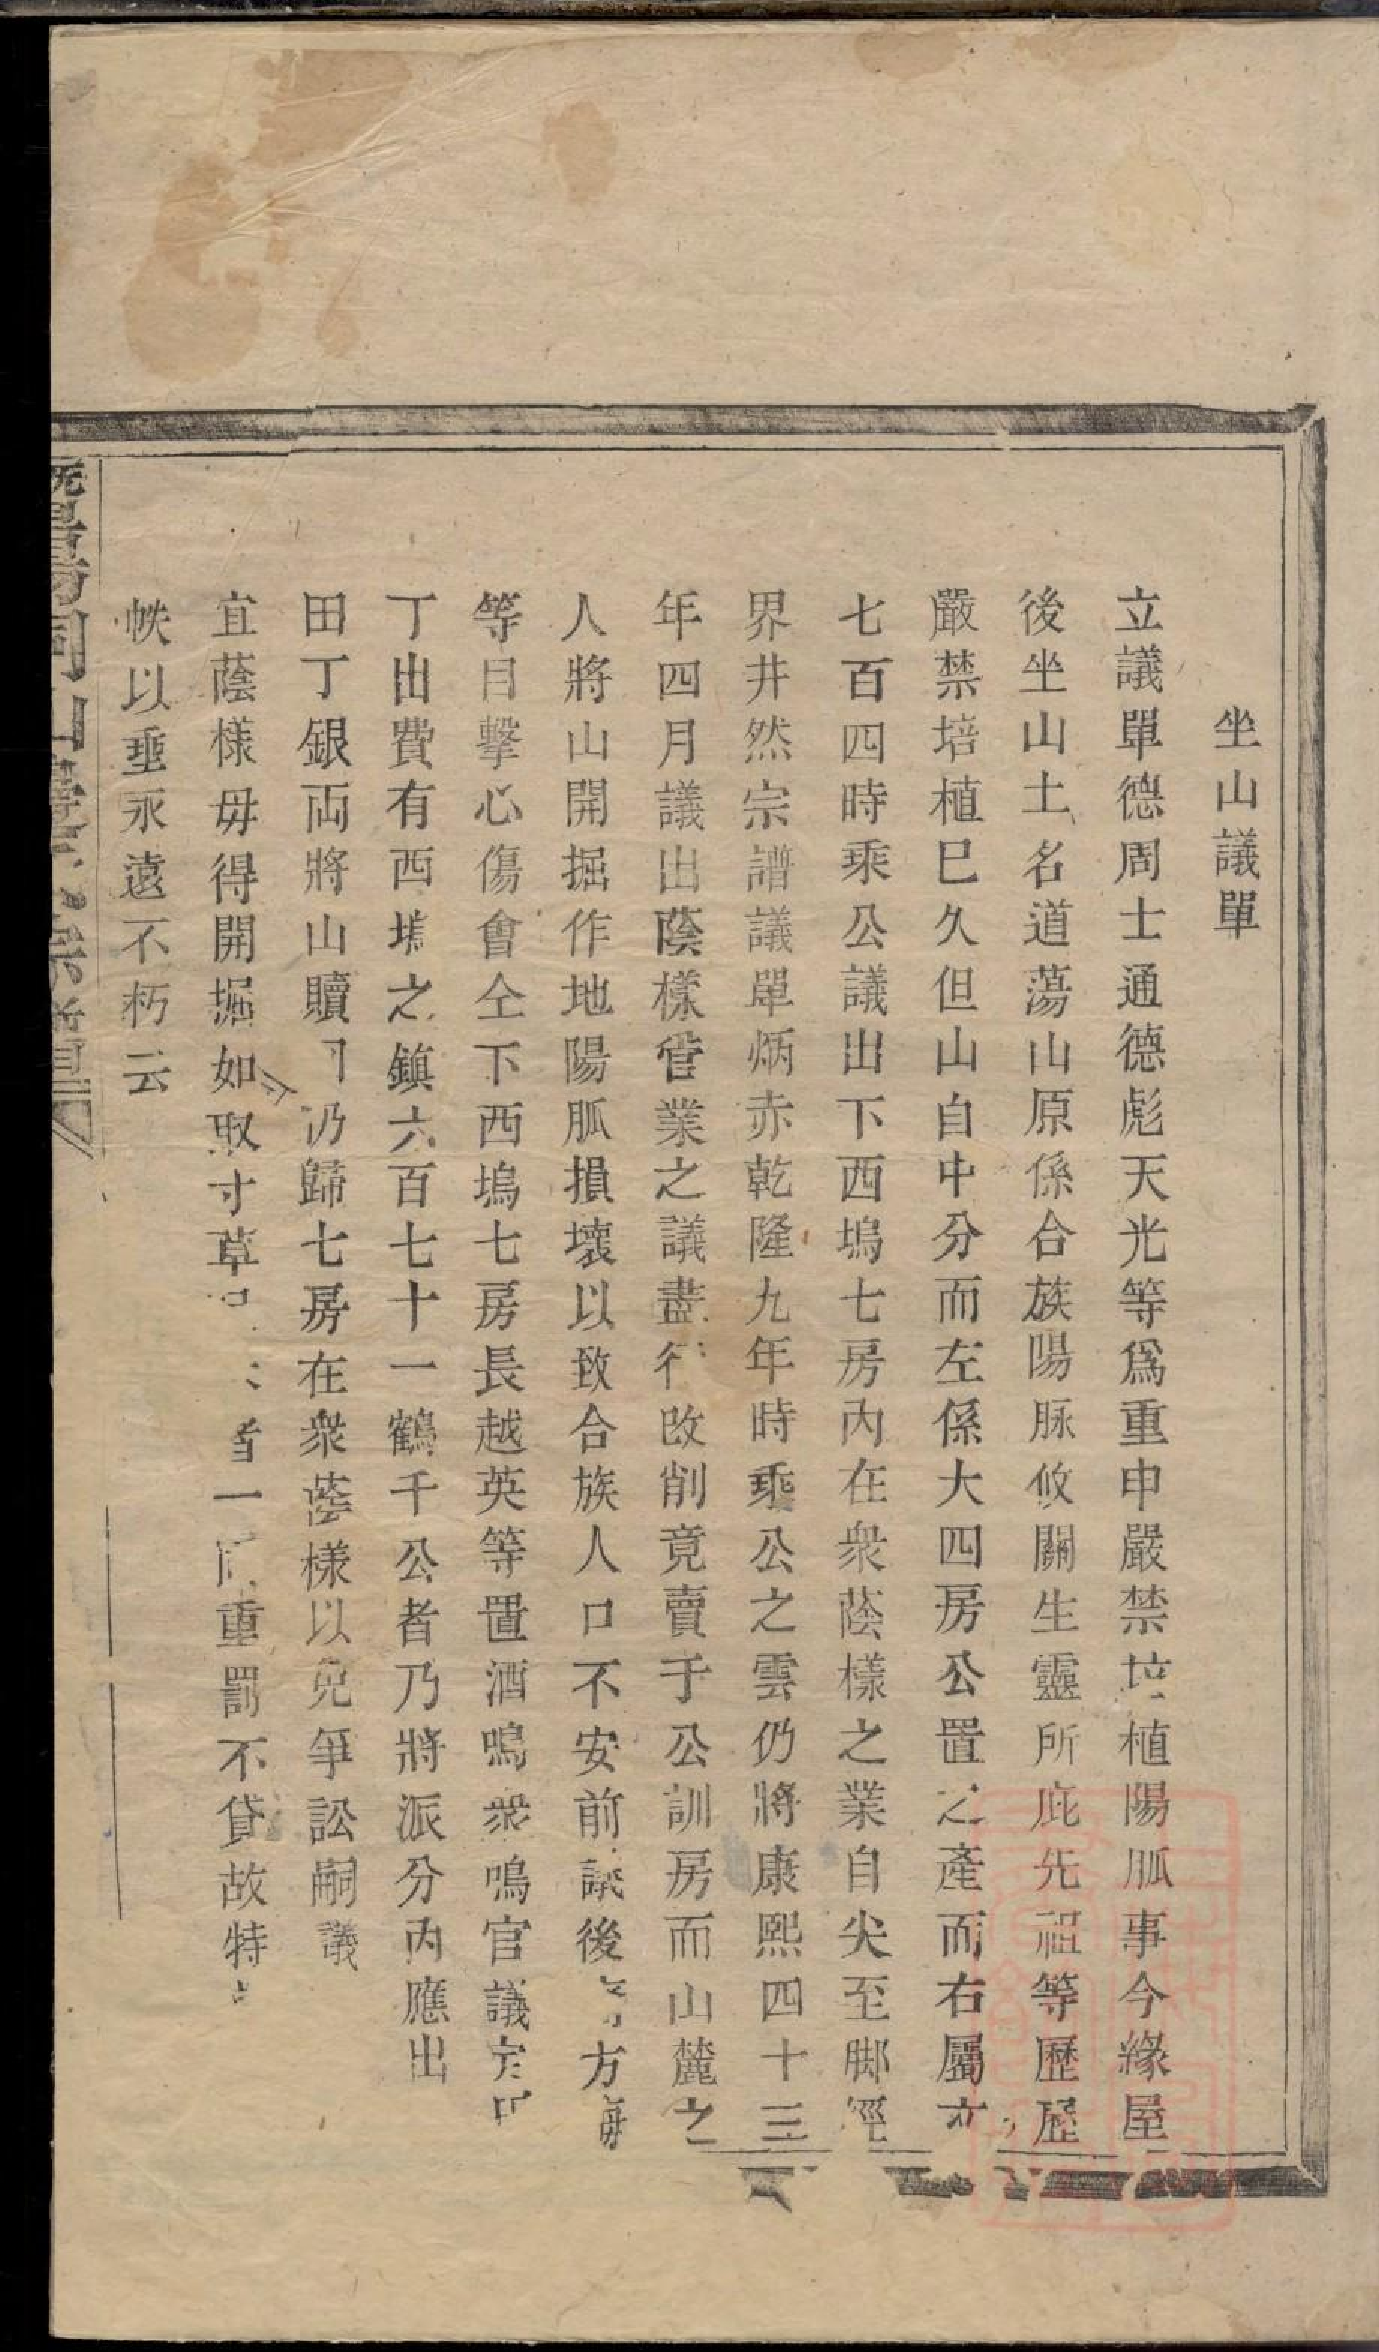 坐山議單
立議單德周士通德彪天光等爲重申嚴禁培植陽脈事今緣屋
後坐山土名道蕩山原係合族陽脉攸關生靈所庇先祖等歷歷
嚴禁培植巳久但山自中分而左係大四房公置之產而右屬
七百四時乘公議出下西塢七房內在衆蔭樣之業自尖至脚徑
界井然宗譜議單炳赤乾隆九年時乘公之雲仍將康熙四十三
年四月議出蔭樣管業之議盡行改削竟賣于公訓房而山麓之
人將山開掘作地陽脈損壞以致合族人口不安前議後方
等目擊心傷會仝下西塢七房長越英等置酒鳴衆鳴官議定
丁出費有西塢之鎮六百七十一鶴千公者乃將派分內應出
田丁銀両將山贖仍歸七房在衆蔭樣以免爭訟嗣議
宜蔭樣毋得開掘如取寸草者一重罰不貸故特
帙以垂永遠不朽云
暨陽同山壽宗譜